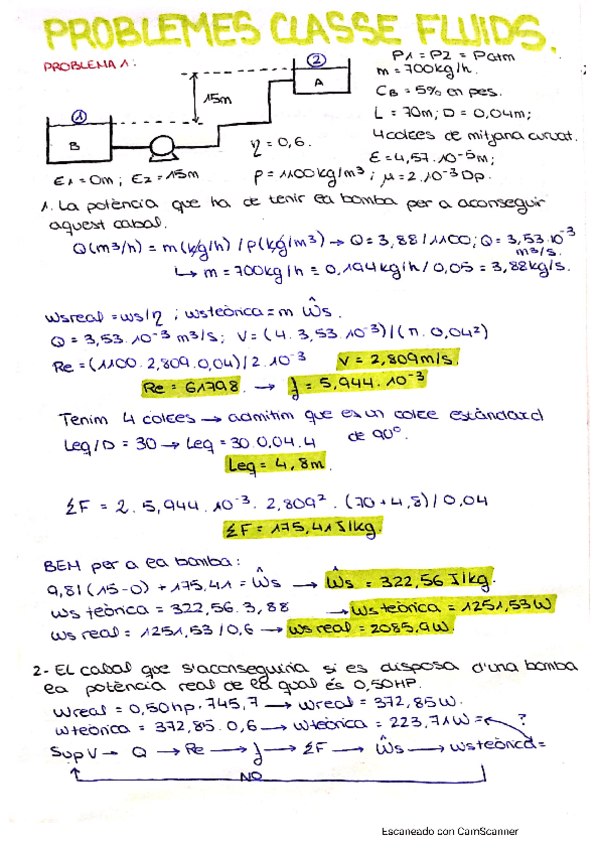 PROBLEMES CLASSE FLUIDS.
PROBLEMA 1:
P1 = P2 = Patm
m = 700kg/h.
CB = 5% en pes.
L = 70m; D = 0,04m;
4 colzes de mitjana curvat.
ε = 4,57·10⁻⁵m;
ρ = 1100kg/m³; μ = 2·10⁻³ Dp.
① ② A B
15m
η = 0,6.
E1 = 0m; E2 = 15m
1. La potència que ha de tenir la bomba per a aconseguir
aquest cabal.
Q(m³/h) = m(kg/h) / ρ(kg/m³) → Q = 3,88/1100; Q = 3,53·10⁻³ m³/s.
↳ m = 700kg/h = 0,194kg/h / 0,05 = 3,88kg/s.
Wsreal = ws/η ; wsteòrica = m Ŵs.
Q = 3,53·10⁻³ m³/s; V = (4·3,53·10⁻³)/(π·0,04²)
Re = (1100·2,809·0,04)/2·10⁻³ V = 2,809m/s.
Re = 61798. → f = 5,944·10⁻³
Tenim 4 colzes → admitim que es un colze estàndard
de 90°.
Leq/D = 30 → Leq = 30·0,04·4
Leq = 4,8m.
ΣF = 2·5,944·10⁻³·2,809²·(70+4,8)/0,04
ΣF = 175,41J/kg.
BEM per a la bomba:
9,81(15-0) + 175,41 = Ŵs → Ŵs = 322,56 J/kg.
Ws teòrica = 322,56·3,88 → Ws teòrica = 1251,53W
Ws real = 1251,53/0,6 → Ws real = 2085,9W.
2- El cabal que s'aconseguiria si es disposa d'una bomba
la potència real de la qual és 0,50HP.
Wreal = 0,50hp·745,7 → Wreal = 372,85W.
Wteòrica = 372,85·0,6 → Wteòrica = 223,71W = ?
Sup V → Q → Re → f → ΣF → Ŵs → Wsteòrica =
NO
Escaneado con CamScanner